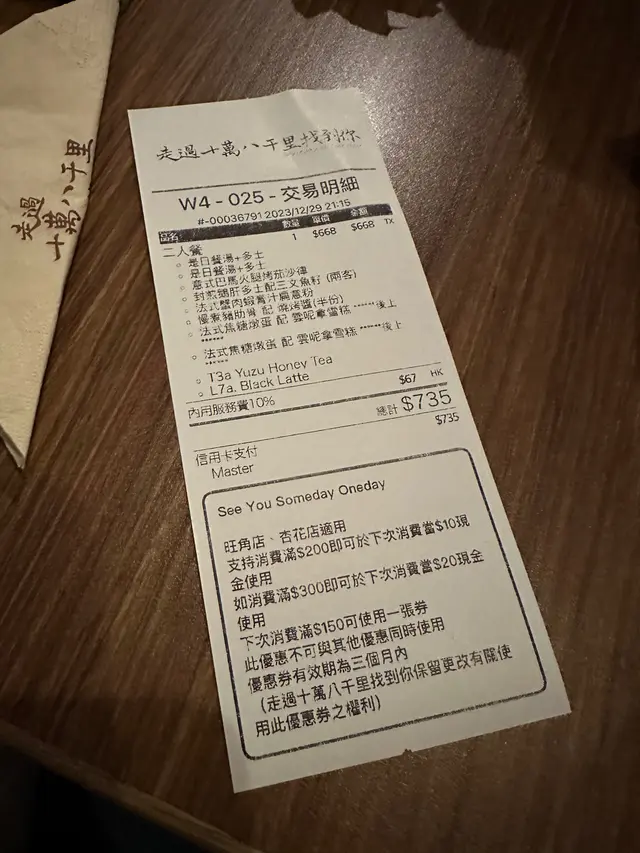 走過
十萬八千里
走過十萬八千里找到你
W4 - 025 - 交易明細
#-00036791 2023/12/29 21:15
品名 數量 單價 金額 TX
二人餐 1 $668 $668
是日餐湯+多士
是日餐湯+多士
意式巴馬火腿烤茄沙律
封煎鵝肝多士配三文魚籽 (兩客)
法式蟹肉蝦膏汁扁意粉
慢煮豬肋骨 配 燒烤醬(半份)
法式焦糖燉蛋 配 雲呢拿雪糕 ******後上
******
法式焦糖燉蛋 配 雲呢拿雪糕 ******後上
******
T3a Yuzu Honey Tea
L7a. Black Latte
內用服務費10% $67 HK
總計 $735
信用卡支付 $735
Master
See You Someday Oneday
旺角店、杏花店適用
支持消費滿$200即可於下次消費當$10現
金使用
如消費滿$300即可於下次消費當$20現金
使用
下次消費滿$150可使用一張券
此優惠不可與其他優惠同時使用
優惠券有效期為三個月內
(走過十萬八千里找到你保留更改有關使
用此優惠券之權利)